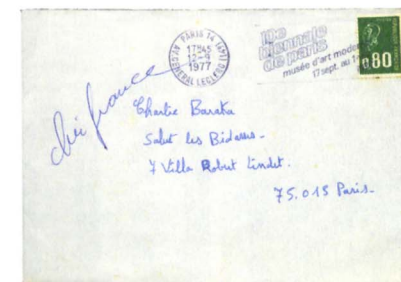 PARIS 14
17H45
12-9
1977
AV. GENERAL LECLERC
10e
biennale
de paris
musée d'art moder
17 sept. au 1
0,80
france
Charlie Barata
Salut les Bidasses.
7 Villa Robert Lindet.
75.015 Paris.